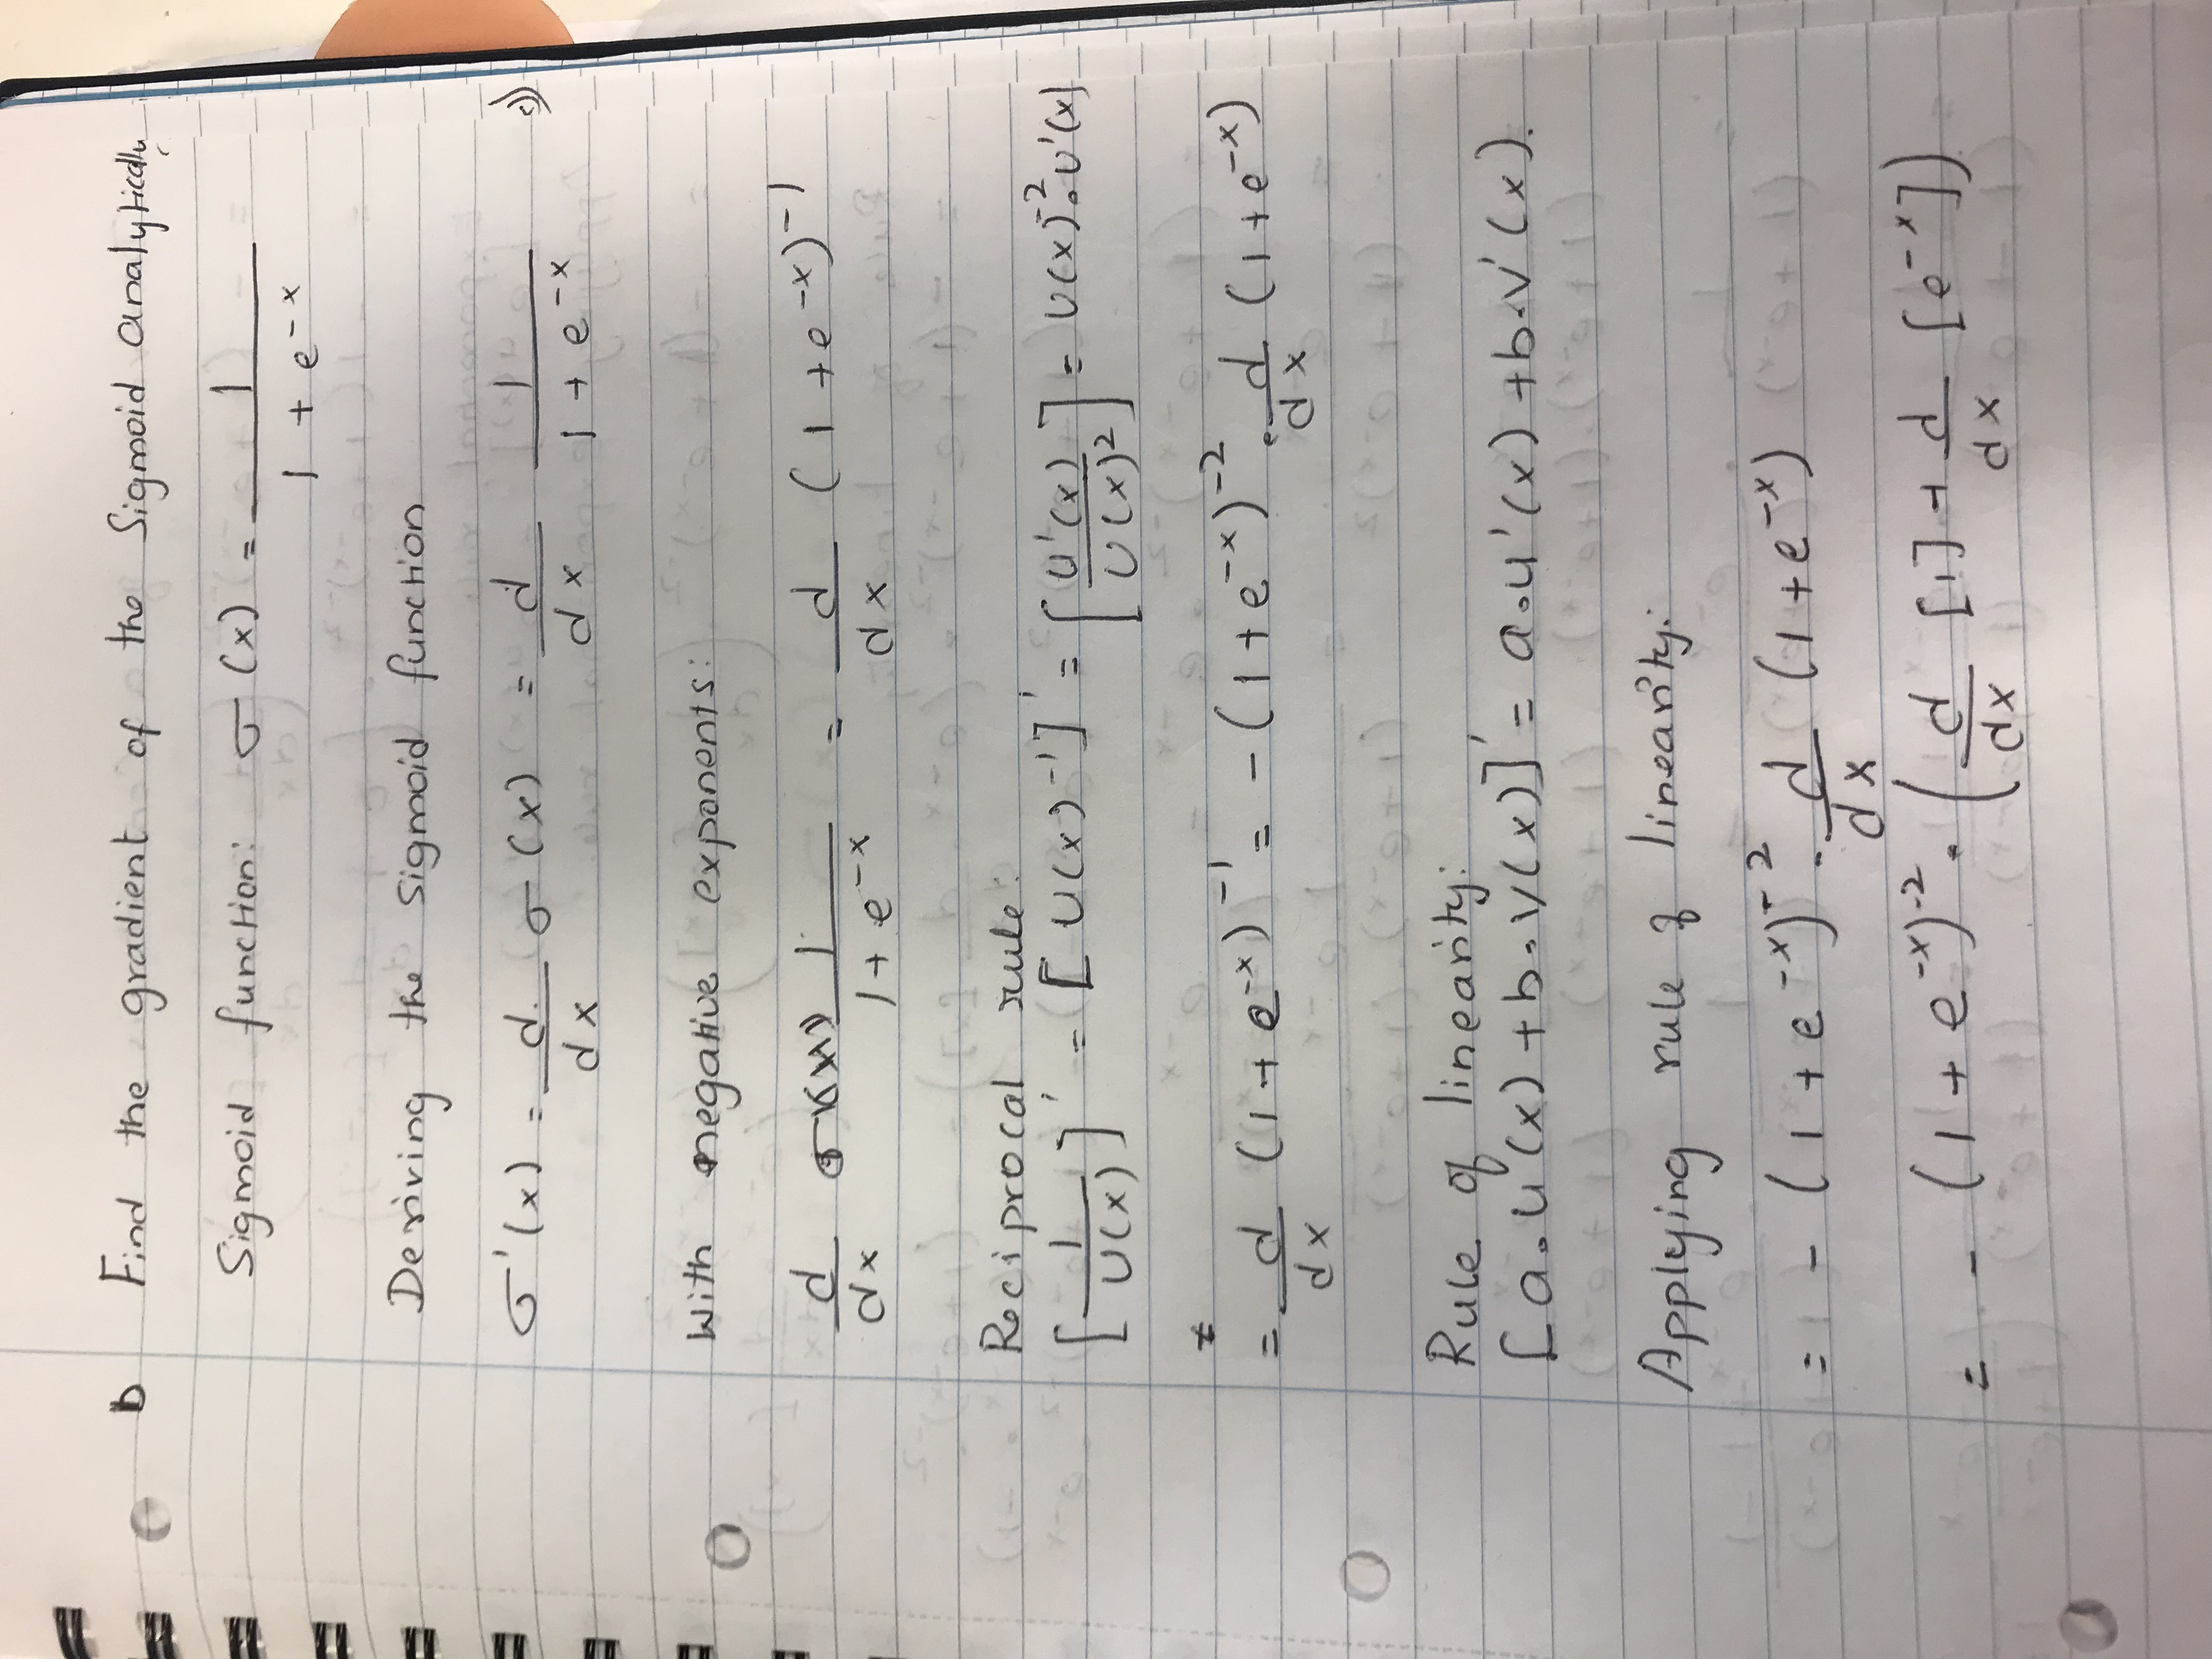 b Find the gradient of the Sigmoid analytically
Sigmoid function: σ(x) = 1 / (1 + e^-x)
Deriving the sigmoid function
σ'(x) = d/dx σ(x) = d/dx 1 / (1 + e^-x)
With negative exponents:
d/dx 1 / (1 + e^-x) = d/dx (1 + e^-x)^-1
Reciprocal rule:
[1 / U(x)]' = [U(x)^-1]' = [U'(x) / U(x)^2] = U(x)^-2 . U'(x)
= d/dx (1 + e^-x)^-1 = -(1 + e^-x)^-2 . d/dx (1 + e^-x)
Rule of linearity:
[a.u(x) + b.v(x)]' = a.u'(x) + b.v'(x).
Applying rule of linearity:
= - (1 + e^-x)^-2 . d/dx (1 + e^-x)
= - (1 + e^-x)^-2 . (d/dx [1] + d/dx [e^-x])